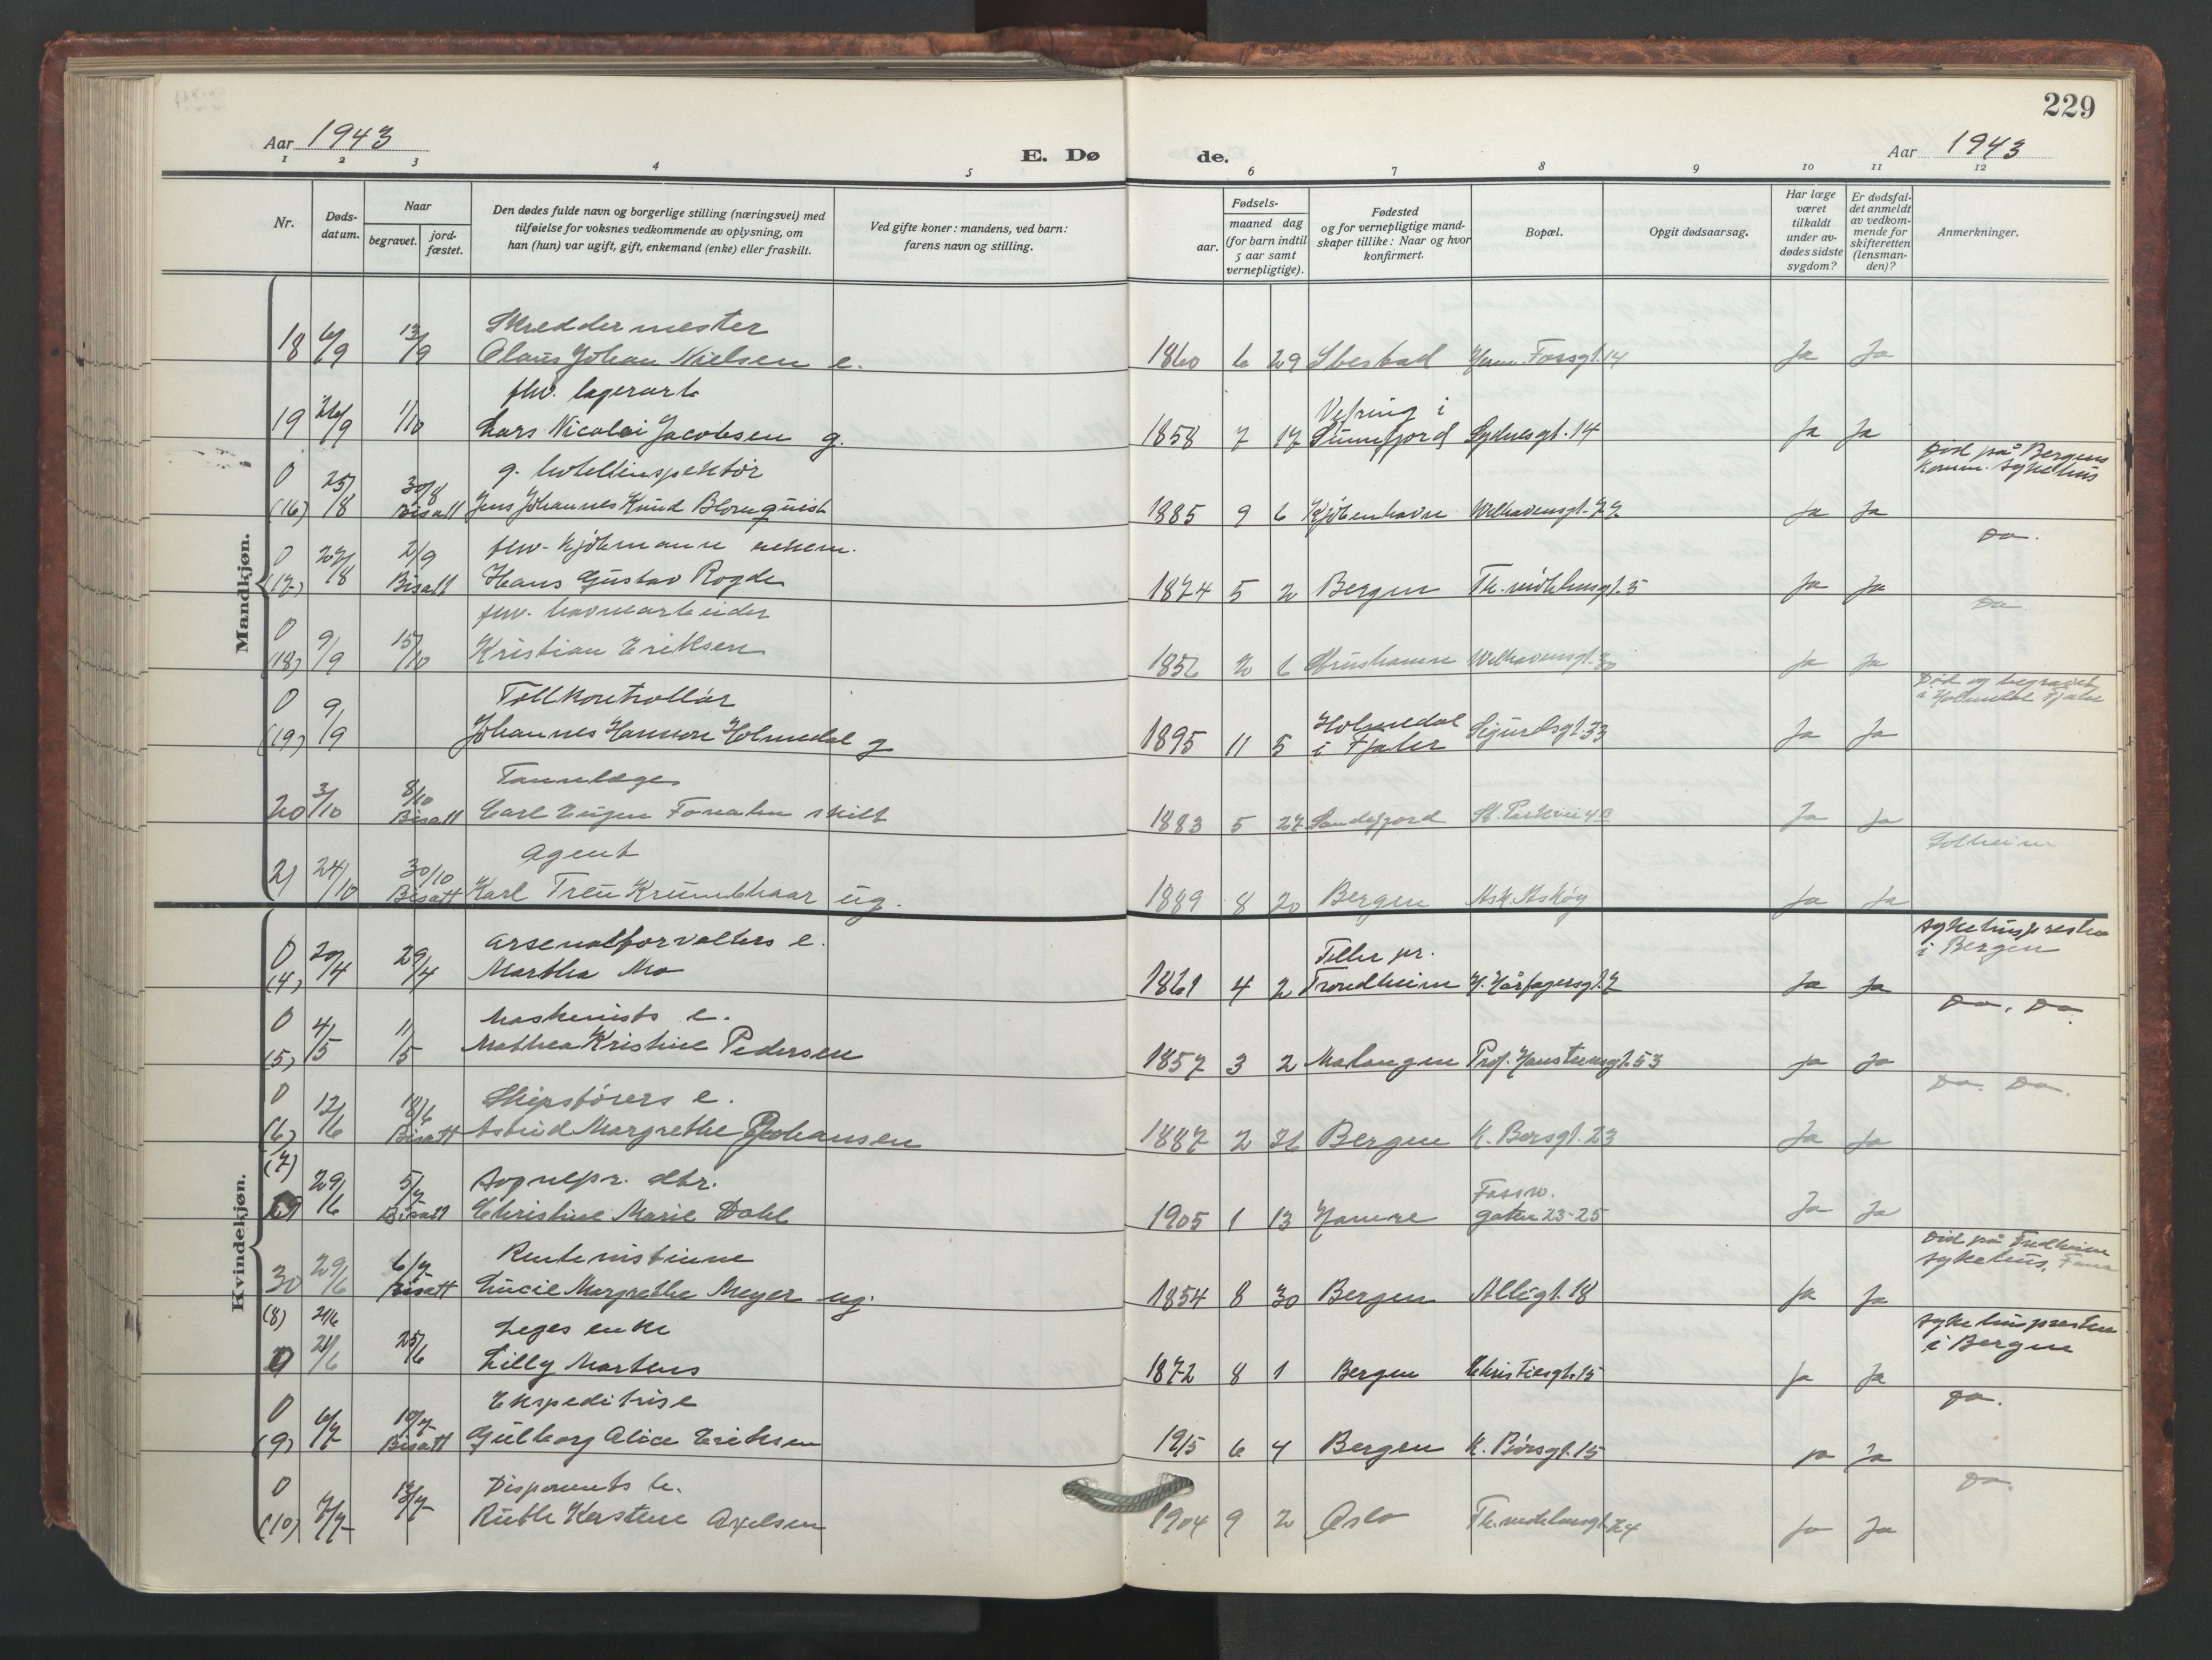 229
Aar 1943
E. Dø
de.
Aar 1943
1 2 3 4 5 6 7 8 9 10 11 12
Nr.
Døds-
datum.
Naar
begravet.
jord-
fæstet.
Den dødes fulde navn og borgerlige stilling (næringsvei) med
tilføielse for voksnes vedkommende av oplysning, om
han (hun) var ugift, gift, enkemand (enke) eller fraskilt.
Ved gifte koner: mandens, ved barn:
farens navn og stilling.
Fødsels-
aar.
maaned dag
(for barn indtil
5 aar samt
vernepligtige).
Fødested
og for vernepligtige mand-
skaper tillike: Naar og hvor
konfirmert.
Bopæl.
Opgit dødsaarsag.
Har læge
været
tilkaldt
under av-
dødes sidste
sygdom?
Er dødsfal-
det anmeldt
av vedkom-
mende for
skifteretten
(lensman-
den)?
Anmerkninger.
Mandkjøn.
Skreddermester
18 6/9 13/9 Claus Johan Nielsen e. 1860 6 29 Ibestad Herm. Fossgt. 14 Ja Ja
fhv. lagerarb.
19 26/9 1/10 Lars Nicolai Jacobsen g. 1858 7 17 Vefring i Sunnfjord Sydnesgt. 14 Ja Ja
g. hotellinspektør
0 (16) 25/8 30/8 Bisatt Jens Johannes Knud Blomquist 1885 9 6 Kjøbenhavn Welhavensgt. 72 Ja Ja
Død på Bergens
komm. sykehus
fhv. kjøbmann enkem.
0 (17) 27/8 2/9 Bisatt Hans Gustav Rogde 1874 5 2 Bergen Th. møhlensgt. 5 Ja Ja Do.
fhv. havnearbeider
0 (18) 9/9 15/10 Kristian Eriksen 1856 2 6 Strushamn Welhavensgt. Ja Ja Do.
Tollkontrollør
0 (19) 9/9 Johannes Hansson Holmedal g 1895 11 5 Holmedal i Fjaler Sigurdsgt. 33 Ja Ja
Død og begravet
i Holmedal Fjaler
Tannlæge
20 3/10 8/10 Bisatt Carl Eugen Fonahn skilt 1883 5 27 Sandefjord St. Parkvei 4B Ja Ja
Agent
21 24/10 30/10 Bisatt Karl Treu Krumbhaar ug. 1889 8 20 Bergen Ask. Askøy Ja Ja Solheim
Kvindekjøn.
Arsenalforvalters e.
0 (4) 20/4 29/4 Martha Mo 1861 4 2 Tiller pr. Trondheim H. Hårfagersgt. 7 Ja Ja
sykehuspresten
i Bergen
Maskinists e.
0 (5) 4/5 11/5 Mathea Kristine Pedersen 1857 3 2 Malangen Prof. Hansteensgt. 53 Ja Ja Do. Do.
Skipsførers e.
0 (6) 12/6 18/6 Bisatt Astrid Margrethe Johansen 1887 2 26 Bergen K. Børsgt. 23 Ja Ja Do. Do.
Sognepr. dtr.
(7) 29 29/6 5/7 Bisatt Christine Marie Dahl 1905 1 13 Hamre Fossw. gaten 23-25 Ja Ja
Rentenistinne
30 29/6 6/7 Bisatt Lucie Margrethe Meyer ug. 1854 8 30 Bergen Allégt. 18 Ja Ja
Død på Fredheim
sykehus, Fana
Leges enke
(8) 21/6 0 21/6 25/6 Lilly Martens 1872 8 1 Bergen Christiesgt. 15 Ja Ja
sykehuspresten
i Bergen
Ekspeditrise
0 (9) 6/7 10/7 Bisatt Gulborg Alice Eriksen 1915 6 4 Bergen K. Børsgt. 15 ja Ja Do.
Disponents h.
0 (10) 7/7 13/7 Ruth Kerstine Axelsen 1904 9 2 Oslo Th. møhlensgt. 24 Ja Ja Do.